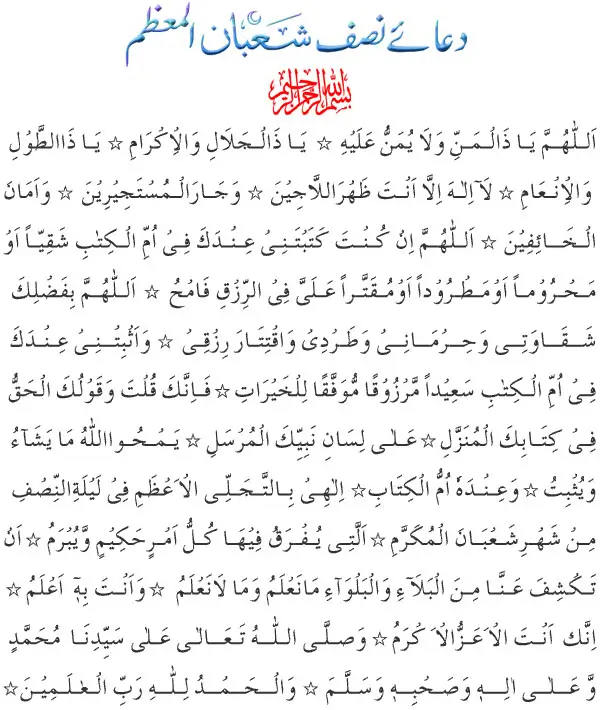 دعائے نصف شعبان المعظم
بسم الله الرحمن الرحيم
اَللّٰهُمَّ يَا ذَالْمَنِّ وَلَا يُمَنُّ عَلَيْهِ ☆ يَا ذَالْجَلَالِ وَالْاِكْرَامِ ☆ يَا ذَاالطَّوْلِ
وَالْاِنْعَامِ ☆ لَآاِلٰهَ اِلَّا اَنْتَ ظَهْرَاللَّاجِيْنَ ☆ وَجَارَالْمُسْتَجِيْرِيْنَ ☆ وَاَمَانَ
الْخَائِفِيْنَ ☆ اَللّٰهُمَّ اِنْ كُنْتَ كَتَبْتَنِىْ عِنْدَكَ فِىْ اُمِّ الْكِتٰبِ شَقِيّاً اَوْ
مَحْرُوْماً اَوْمَطْرُوْداً اَوْمُقَتَّراً عَلَىَّ فِى الرِّزْقِ فَامْحُ ☆ اَللّٰهُمَّ بِفَضْلِكَ
شَقَاوَتِىْ وَحِرْمَانِىْ وَطَرْدِىْ وَاقْتِتَارَ رِزْقِىْ ☆ وَاَثْبِتْنِىْ عِنْدَكَ
فِىْ اُمِّ الْكِتٰبِ سَعِيْداً مَّرْزُوْقًا مُّوَفَّقًا لِلْخَيْرَاتِ ☆ فَاِنَّكَ قُلْتَ وَقَوْلُكَ الْحَقُّ
فِىْ كِتَابِكَ الْمُنَزَّلِ ☆ عَلٰى لِسَانِ نَبِيِّكَ الْمُرْسَلِ ☆ يَمْحُوااللّٰهُ مَا يَشَآءُ
وَيُثْبِتُ ☆ وَعِنْدَهٗ اُمُّ الْكِتَابِ ☆ اِلٰهِىْ بِالتَّجَلِّى الْاَعْظَمِ فِىْ لَيْلَةِالنِّصْفِ
مِنْ شَهْرِشَعْبَانَ الْمُكَرَّمِ ☆ اَلَّتِى يُفْرَقُ فِيْهَا كُلُّ اَمْرٍحَكِيْمٍ وَّيُبْرَمُ ☆ اَنْ
تَكْشِفَ عَنَّا مِنَ الْبَلَآءِ وَالْبَلْوَآءِ مَانَعْلَمُ وَمَا لَانَعْلَمُ ☆ وَاَنْتَ بِهٖ اَعْلَمُ ☆
اِنَّكَ اَنْتَ الْاَعَزُّالْاَكْرَمُ ☆ وَصَلَّى اللّٰهُ تَعَالٰى عَلٰى سَيِّدِنَا مُحَمَّدٍ
وَّعَلٰى اٰلِهٖ وَصَحْبِهٖ وَسَلَّمَ ☆ وَالْحَمْدُ لِلّٰهِ رَبِّ الْعٰلَمِيْنَ ☆